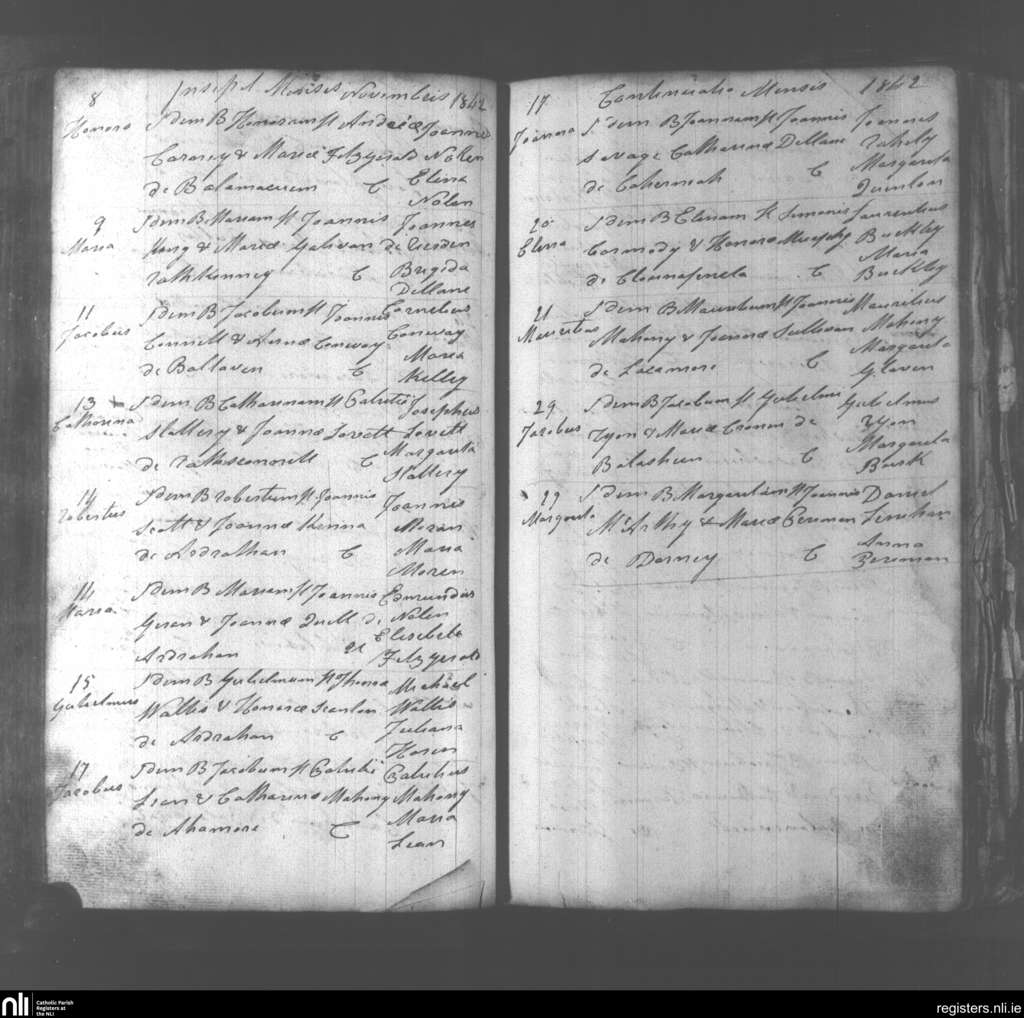 8 Insipt Mensis Novembris 1842
Honora Idem B Honoram fl Andreæ Joannes
Carney & Mariæ Fitzgerald Nolen
de Balamacuem C Elena
Nolen
9 Idem B Mariam fl Joannis Joannes
Maria & Mariæ Galivan de Leeden
rathkenney C Brigida
Dillane
11 Idem B Jacobum fl Joannis Cornelius
Jacobus Connell & Annæ Conway Conway
de Ballaven C Maria
Kelley
13 Idem B Catharinam fl Patritii Josephus
Catharina Slattery & Joannæ Lovett Lovett
de C Margarita
Slattery
14 Idem B robertum fl Joannis Joannes
robertus Scott & Joannæ Kenna Moran
de Ardrathan C Maria
Moren
14 Idem B Mariam fl Joannis Edmundus
Maria & Joannæ Quill de Nolen
Ardrahan Elisebeta
Fitzgerald
15 Idem B Gulielmum fl Thoma Michael
Gulielmus Wallis & Honoræ Scanlon Wallis
de Ardrahan C Juliana
Horen
17 Idem B Jacobum fl Patritii Patritius
Jacobus Lean & Catharinæ Mahony Mahony
de Ahamore C Maria
Lean
17 Continuatio Mensis 1842
Joanna Idem B Joannam fl Joannis Joannes
Savage Catharinæ Dillane rahely
de Caherneah C Margareta
Quinlan
20 Idem B Elenam fl Simonis Laurentius
Elena Cormody & Honoræ Murphy Buckley
de C Maria
Buckley
21 Idem B Mauritium fl Joannis Mauritius
Mauritius Mahony & Joannæ Sullivan Mahony
de Lacamore C Margareta
Glaven
29 Idem B Jacobum fl Gulielmi Gulielmus
Jacobus Tyon & Mariæ Cronen de Tyon
Balasheen C Margareta
Bursk
29 Idem B Margaritam fl Joannis Daniel
Margareta McArthy & Mariæ Perenan Linehan
de Dorney C Anna
Pereman
nli Catholic Parish
Registers at
the NLI
registers.nli.ie